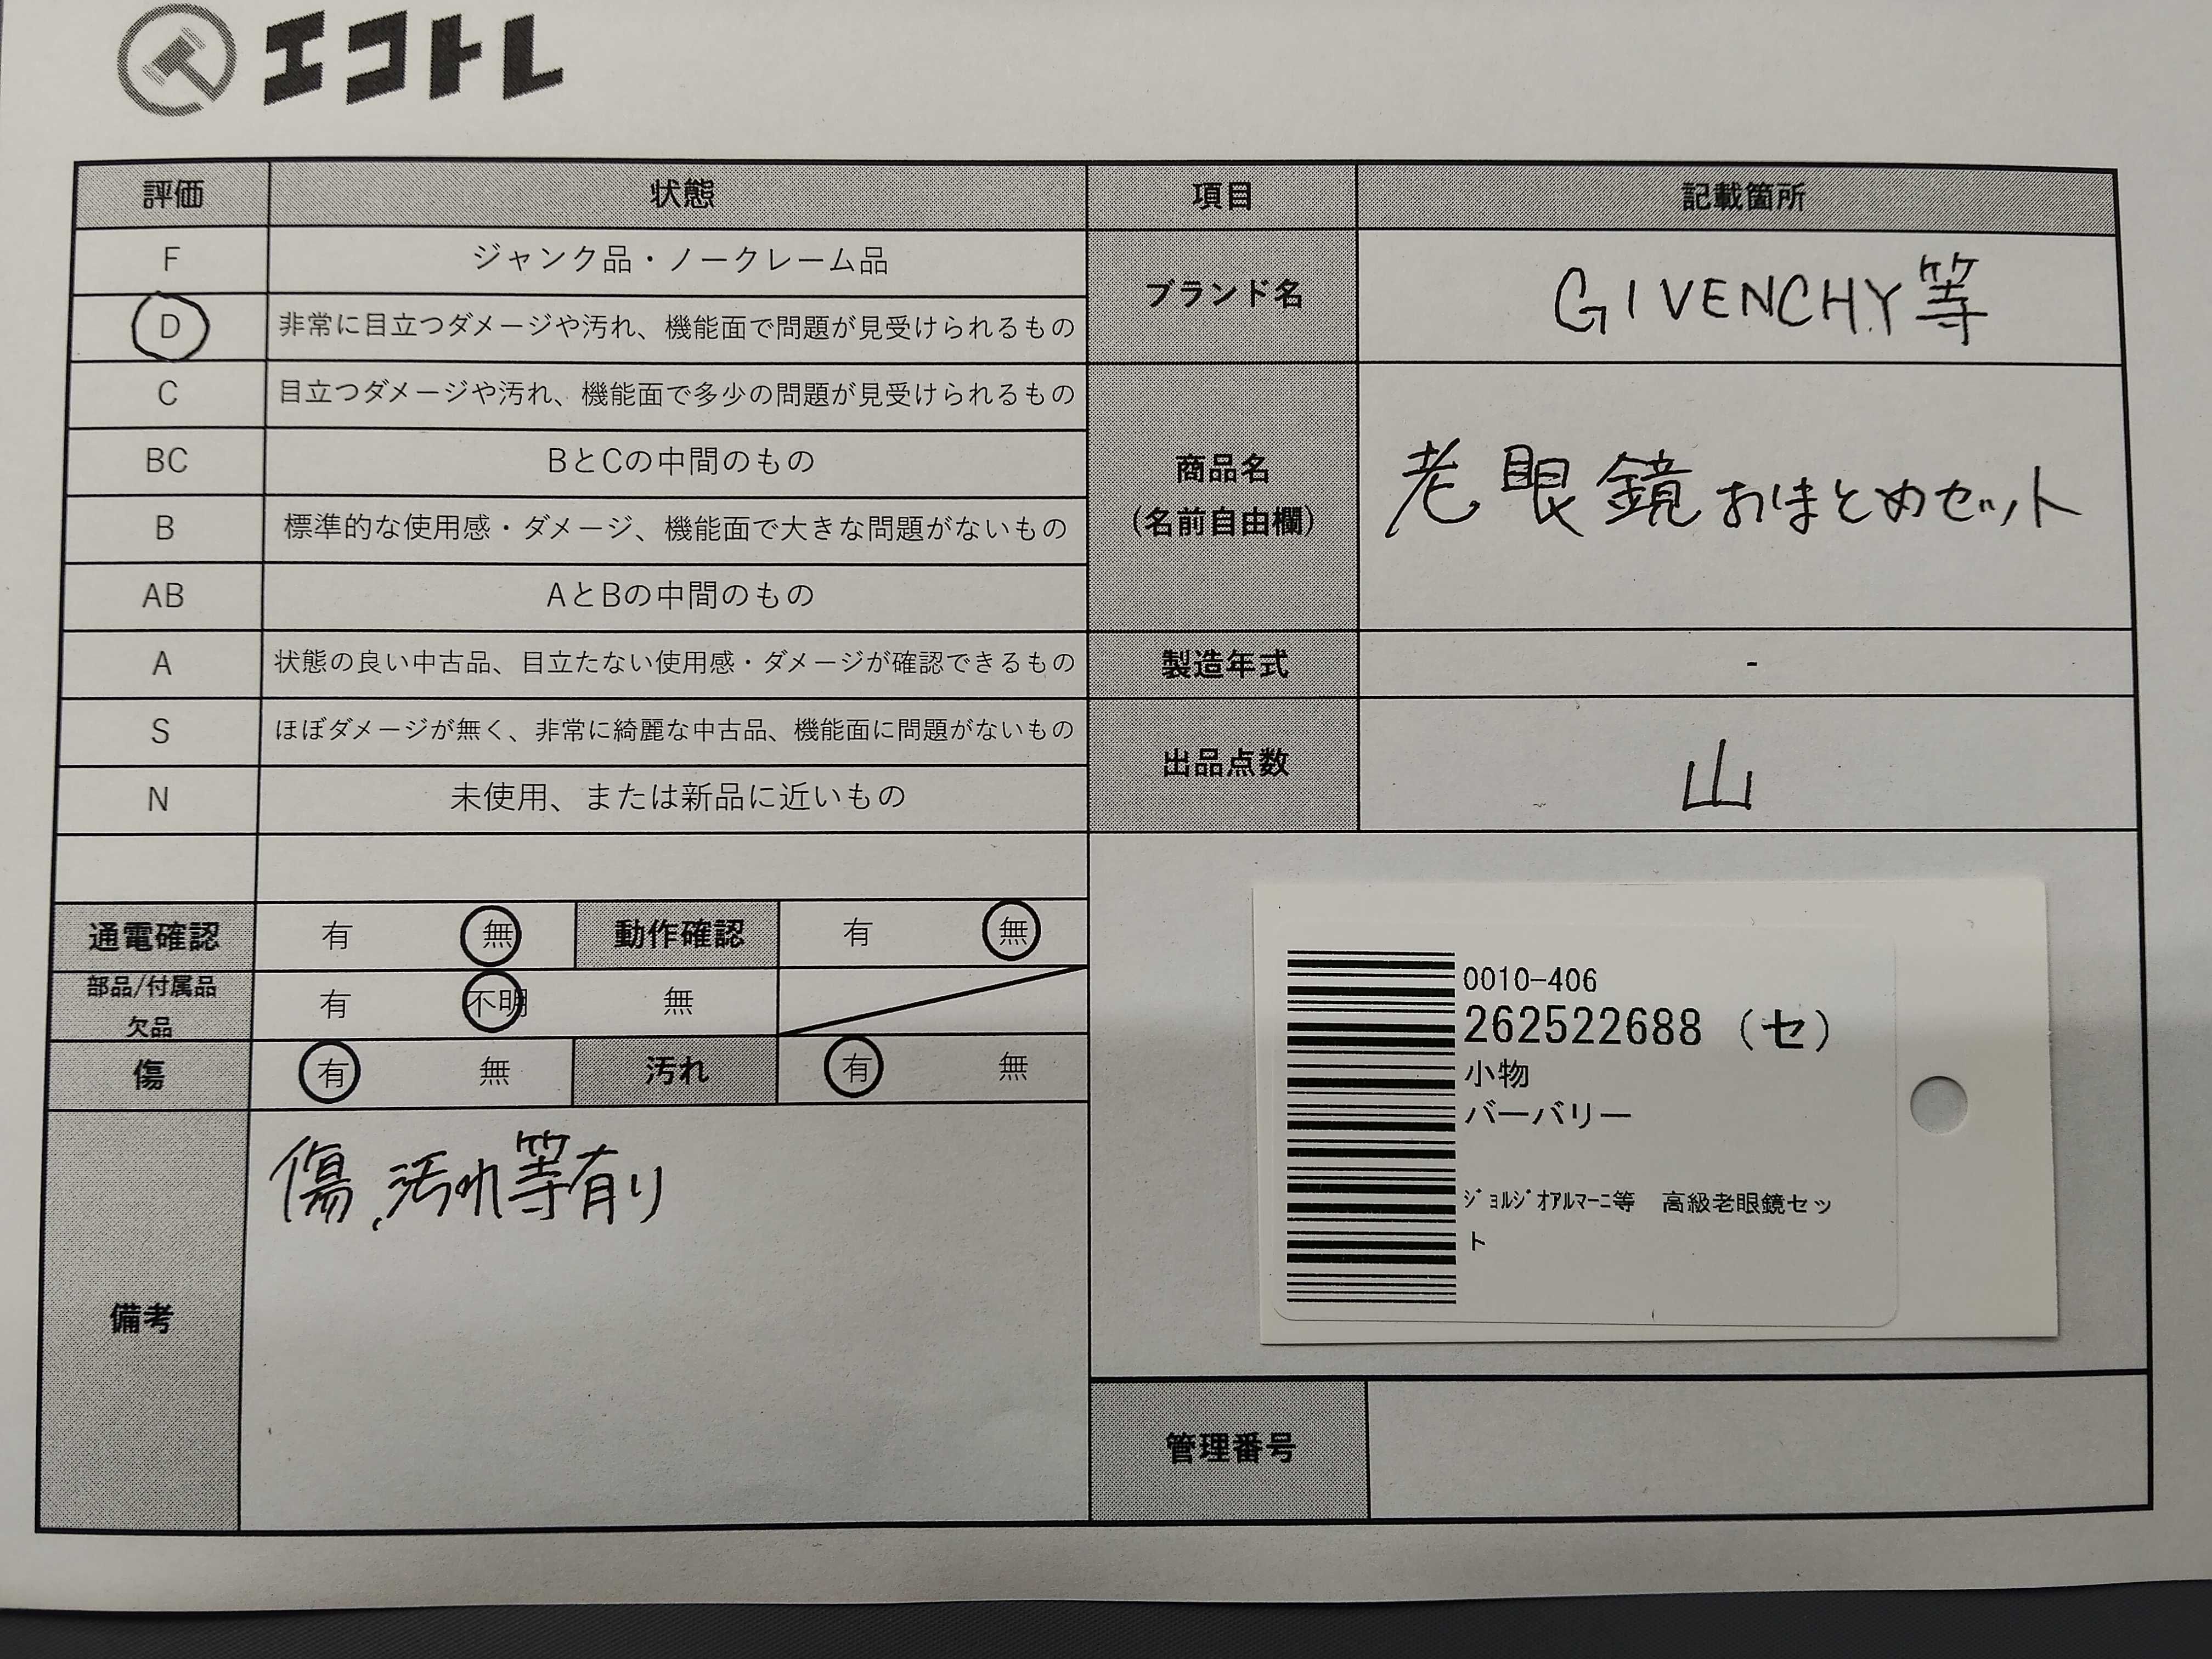 エコトレ
評価 状態 項目 記載箇所
F ジャンク品・ノークレーム品
D 非常に目立つダメージや汚れ、機能面で問題が見受けられるもの
ブランド名 GIVENCHY等
C 目立つダメージや汚れ、機能面で多少の問題が見受けられるもの
BC BとCの中間のもの
商品名
(名前自由欄)
老眼鏡おまとめセット
B 標準的な使用感・ダメージ、機能面で大きな問題がないもの
AB AとBの中間のもの
A 状態の良い中古品、目立たない使用感・ダメージが確認できるもの
製造年式 -
S ほぼダメージが無く、非常に綺麗な中古品、機能面に問題がないもの
出品点数 山
N 未使用、または新品に近いもの
通電確認 有 無 動作確認 有 無
部品/付属品
欠品
有 不明 無
傷 有 無 汚れ 有 無
備考
傷、汚れ等有り
0010-406
262522688 (セ)
小物
バーバリー
ｼﾞｮﾙｼﾞｵｱﾙﾏｰﾆ等 高級老眼鏡セッ
ト
管理番号